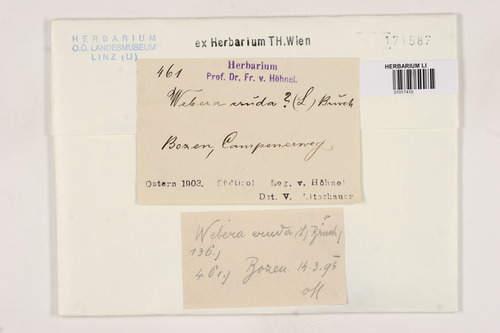 HERBARIUM
O.Ö. LANDESMUSEUM
LINZ (LI)
ex Herbarium TH.Wien
171587
HERBARIUM LI
01017410
461
Herbarium
Prof. Dr. Fr. v. Höhnel.
Webera cruda ? (L) Bruch
Bozen, Campenerweg,
Ostern 1903. Südtirol Leg. v. Höhnel
Det. V. Litschauer
Webera cruda (L) Bruch
136.)
461.) Bozen 14.3.95